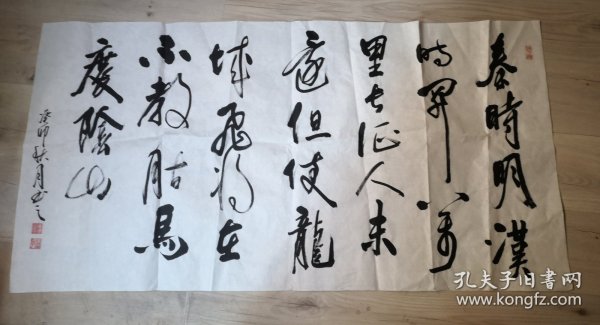 秦時明漢
时関萬
里长征人未
還但使龍
城飛将在
不教胡馬
度陰山
癸卯秋月书之
孔夫子旧书网
www.kongfz.com